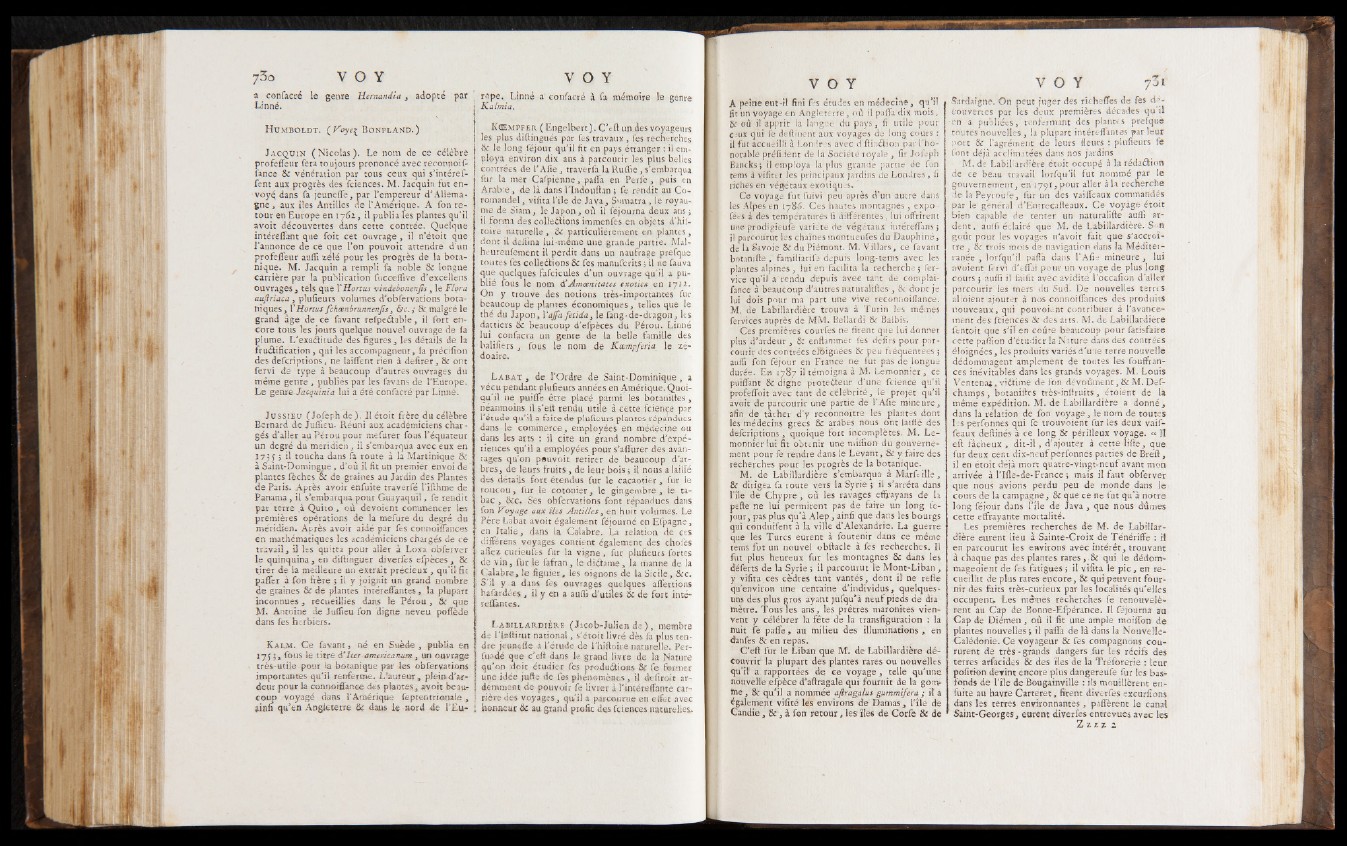 730 V O Y
a consacré le genre Hernandia, adopté par
Linné.
HUMBOLDT. (Voyez BONPLAND.)
JACQUIN (Nicolas). Le nom de ce célèbre
professeur sera toujours prononcé avec reconnois-
sance & vénération par tous ceux qui s'intéres-
sent aux progrès des sciences. M. Jacquin fut en-
voyé dans sa jeunesse, par l'empereur d'Allema-
gne, aux îles Antilles de l'Amérique. A son re-
tour en Europe en 1762, il publia les plantes qu'il
avoit découvertes dans cette contrée. Quelque
intéressant que soit cet ouvrage, il n'étoit que
l'annonce de ce que l'on pouvoit attendre d'un
professeur aussi zélé pour les progrès de la bota-
nique. M. Jacquin a rempli sa noble & longue
carrière par la publication successive d'excellens
ouvrages, tels que l'Hortus vindebonensis, le Flora
austriaca, plusieurs volumes d'observations bota-
niques, l'Hortus schœnbrunnensis, &c.; & malgré le
grand âge de ce savant respectable, il sort en-
core tous les jours quelque nouvel ouvrage de sa
plume. L'exactitude des figures, les détails de la
fructification, qui les accompagnent, la précision
des descriptions, ne laissent rien à desirer, & ont
servi de type à beaucoup d'autres ouvrages du
même genre, publiés par les savans de l'Europe.
Le genre Jacquinia lui a été consacré par Linné.
JUSSIEU (Joseph de). Il étoit frère du célèbre
Bernard de Jussieu. Réuni aux academiciens char-
gés d'aller au Pérou pour mesurer sous l'équateur
un degré du méridien, il s'embarqua avec eux en
1735; il toucha dans sa route à la Martinique &
à Saint-Domingue, d'où il fit un premier envoi de
plantes sèches & de graines au Jardin des Plantes
de Paris. Après avoir ensuite traversé l'isthme de
Panama, il s'embarqua pour Guayaquil, se rendit
par terre à Quito, où devoient commencer les
premières opérations de la mesure du degré du
méridien. Après avoir aidé par ses connoissances
en mathématiques les académiciens chargés de ce
travail, il les quitta pour aller à Loxa observer
le quinquina, en distinguer diverses espèces, &
tirer de la meilleure un extrait précieux, qu'il fit
passer à son frère; il y joignit un grand nombre
de graines & de plantes intéressantes, la plupart
inconnues, recueillies dans le Pérou, & que
M. Antoine de Jussieu son digne neveu possède
dans ses herbiers.
KALM. Ce savant, né en Suède, publia en
1753, sous le titre d'Iter americanum, un ouvrage
très-utile pour la botanique par les observations
importantes qu'il renferme. L'auteur, plein d'ar-
deur pour la connoissance des plantes, avoit beau-
coup voyagé dans l'Amérique septentrionale,
ainsi qu'en Angleterre & dans le nord de l'Eu-
V O Y
rope. Linné a consacré à sa mémoire le genre
Kalmia.
KŒMPFER (Engelbert). C'est un des voyageurs
les plus distingués par ses travaux, ses recherches
& le long séjour qu'il fit en pays étranger: il em-
ploya environ dix ans à parcourir les plus belles
contrées de l'Asie, traversa la Russie, s'embarqua
sur la mer Caspienne, passa en Perse, puis en
Arabie, de là dans l'Indoustan; se rendit au Co-
romandel, visita l'île de Java, Sumatra, le royau-
me de Siam, le Japon, où il séjourna deux ans;
il forma des collections immenses en objets d'his-
toire naturelle, & particulièrement en plantes,
dont il dessina lui-même une grande partie. Mal-
heureusement il perdit dans un naufrage presque
toutes ses collections & ses manuscrits; il ne sauva
que quelques fascicules d'un ouvrage qu'il a pu-
blié sous le nom d'Amœnitates exoticæ en 1712.
On y trouve des notions très-importantes sur
beaucoup de plantes économiques, telles que le
thé du Japon, l'assa fetida, le sang-de-dragon, les
dattiers & beaucoup d'espèces du Pérou. Linné
lui consacra un genre de la belle famille des
balisiers, sous le nom de Kœmpferia le zé-
doaire.
LABAT, de l'Ordre de Saint-Dominique, a
vécu pendant plusieurs années en Amérique. Quoi-
qu'il ne puisse être placé parmi les botanistes,
néanmoins il s'est rendu utile à cette science par
l'étude qu'il a faite de plusieurs plantes répandues
dans le commerce, employées en médecine ou
dans les arts: il cite un grand nombre d'expé-
riences qu'il a employées pour s'assurer des avan-
tages qu'on pouvoit retirer de beaucoup d'ar-
bres, de leurs fruits, de leur bois; il nous a laissé
des détails fort étendus sur le cacaotier, sur le
roucou, sur le cotonier, le gingembre, le ta-
bac, &c. Ses observations sont répandues dans
son Voyage aux îles Antilles, en huit volumes. Le
Père Labat avoit également séjourné en Espagne,
en Italie, dans la Calabre. La relation de ces
différens voyages contient également des choses
assez curieuses sur la vigne, sur plusieurs sortes
de vin, sur le safran, le dictame, la manne de la
Calabre, le figuier, les oignons de la Sicile, &c.
S'il y a dans ses ouvrages quelques assertions
hasardées, il y en a aussi d'utiles & de fort inté-
ressantes.
LABILLARDIÈRE (Jacob-Julien de), membre
de l'Institut national, s'étoit livré dès sa plus ten-
dre jeunesse à l'étude de l'histoire naturelle. Per-
suadé que c'est dans le grand livre de la Nature
qu'on doit étudier ses productions & se former
une idée juste de ses phénomènes, il desiroit ar-
demment de pouvoir se livrer à l'intéressante car-
rière des voyages, qu'il a parcourue en effet avec
honneur & au grand profit des sciences naturelles.
V O Y
A peine eut-il fini ses études en médecine, qu'il
fit un voyage en Angleterre, où il passa dix mois,
& où il apprit la langue du pays, si utile pour
ceux qui se destinent aux voyages de long cours:
il fut accueilli à Londres avec distinction par l'ho-
norable président de la Société royale, sir Joseph
Bancks; il employa la plus grande partie de son
tems à visiter les principaux jardins de Londres, si
riches en végétaux exotiques.
Ce voyage fut suivi peu après d'un autre dans
les Alpes en 1786. Ces hautes montagnes, expo-
sées à des températures si différentes, lui offrirent
une prodigieuse variété de végétaux intéressans;
il parcourut les chaînes montueuses du Dauphiné,
de la Savoie & du Piémont. M. Villars, ce savant
botaniste, familiarisé depuis long-tems avec les
plantes alpines, lui en facilita la recherche; ser-
vice qu'il a rendu depuis avec tant de complai-
sance à beaucoup d'autres naturalistes, & dont je
lui dois pour ma part une vive reconnoissance.
M. de Labillardière trouva à Turin les mêmes
services auprès de MM. Bellardi & Balbis.
Ces premières courses ne firent que lui donner
plus d'ardeur, & enflammer ses desirs pour par-
courir des contrées éloignées & peu fréquentées;
aussi son séjour en France ne fut pas de longue
durée. En 1787 il témoigna à M. Lemonnier, ce
puissant & digne protecteur d'une science qu'il
professoit avec tant de célébrité, le projet qu'il
avoit de parcourir une partie de l'Asie mineure,
afin de tâcher d'y reconnoître les plantes dont
les médecins grecs & arabes nous ont laissé des
descriptions, quoique fort incomplètes. M. Le-
monnier lui fit obtenir une mission du gouverne-
ment pour se rendre dans le Levant, & y faire des
recherches pour les progrès de la botanique.
M. de Labillardière s'embarqua à Marseille,
& dirigea sa route vers la Syrie; il s'arrêta dans
l'île de Chypre, où les ravages effrayans de la
peste ne lui permirent pas de faire un long sé-
jour, pas plus qu'à Alep, ainsi que dans les bourgs
qui conduisent à la ville d'Alexandrie. La guerre
que les Turcs eurent à soutenir dans ce même
tems fut un nouvel obstacle à ses recherches. Il
fut plus heureux sur les montagnes & dans les
déserts de la Syrie; il parcourut le Mont-Liban,
y visita ces cèdres tant vantés, dont il ne reste
qu'environ une centaine d'individus, quelques-
uns des plus gros ayant jusqu'à neuf pieds de dia-
mètre. Tous les ans, les prêtres maronites vien-
vent y célébrer la fête de la transfiguration: la
nuit se passe, au milieu des illuminations, en
danses & en repas.
C'est sur le Liban que M. de Labillardière dé-
couvrit la plupart des plantes rares ou nouvelles
qu'il a rapportées de ce voyage, telle qu'une
nouvelle espèce d'astragale qui fournit de la gom-
me, & qu'il a nommée astragalus gummifera; il a
également visité les environs de Damas, l'île de
Candie, &, à son retour, les îles de Corse & de
V O Y 731
Sardaigne. On peut juger des richesses de ses dé-
couvertes par les deux premières décades qu'il
en a publiées, renfermant des plantes presque
toutes nouvelles, la plupart intéressantes par leur
port & l'agrément de leurs fleurs: plusieurs se
sont déjà acclimatées dans nos jardins.
M. de Labillardière étoit occupé à la rédaction
de ce beau travail lorsqu'il fut nommé par le
gouvernement, en 1791, pour aller à la recherche
de la Peyrouse, sur un des vaisseaux commandés
par le général d'Entrecasteaux. Ce voyage étoit
bien capable de tenter un naturaliste aussi ar-
dent, aussi éclairé que M. de Labillardière. Son
goût pour les voyages n'avoit fait que s'accroî-
tre, & trois mois de navigation dans la Méditer-
ranée, lorsqu'il passa dans l'Asie mineure, lui
avoient servi d'essai pour un voyage de plus long
cours: aussi il saisit avec avidité l'occasion d'aller
parcourir les mers du Sud. De nouvelles terres
alloient ajouter à nos connoissances des produits
nouveaux, qui pouvoient contribuer à l'avance-
ment des sciences & des arts. M. de Labillardière
sentoit que s'il en coûte beaucoup pour satisfaire
cette passion d'étudier la Nature dans des contrées
éloignées, les produits variés d'une terre nouvelle
dédommagent amplement de toutes les souffran-
ces inévitables dans les grands voyages. M. Louis
Ventenat, victime de son dévoûment, & M. Des-
champs, botanistes très-instruits, étoient de la
même expédition. M. de Labillardière a donné,
dans la relation de son voyage, le nom de toutes
les personnes qui se trouvoient sur les deux vais-
seaux destinés à ce long & périlleux voyage. « Il
est fâcheux, dit-il, d'ajouter à cette liste, que
sur deux cent dix-neuf personnes parties de Brest,
il en étoit déjà mort quatre-vingt-neuf avant mon
arrivée à l'Isle-de-France; mais il faut observer
que nous avions perdu peu de monde dans le
cours de la campagne, & que ce ne fut qu'à notre
long séjour dans l'île de Java, que nous dûmes
cette effrayante mortalité.
Les premières recherches de M. de Labillar-
dière eurent lieu à Sainte-Croix de Ténériffe: il
en parcourut les environs avec intérêt, trouvant
à chaque pas des plantes rares, & qui le dédom-
mageoient de ses fatigues; il visita le pic, en re-
cueillit de plus rares encore, & qui peuvent four-
nir des faits très-curieux par les localités qu'elles
occupent. Les mêmes recherches se renouvelè-
rent au Cap de Bonne-Espérance. Il séjourna au
Cap de Diémen, où il fit une ample moisson de
plantes nouvelles; il passa de là dans la Nouvelle-
Calédonie. Ce voyageur & ses compagnons cou-
rurent de très-grands dangers sur les récifs des
terres arsacides & des îles de la Trésorerie: leur
position devint encore plus dangereuse sur les bas-
fonds de l'île de Bougainville: ils mouillèrent en-
suite au havre Carteret, firent diverses excursions
dans les terres environnantes, passèrent le canal
Saint-Georges, eurent diverses entrevues avec les
Zzzz 2